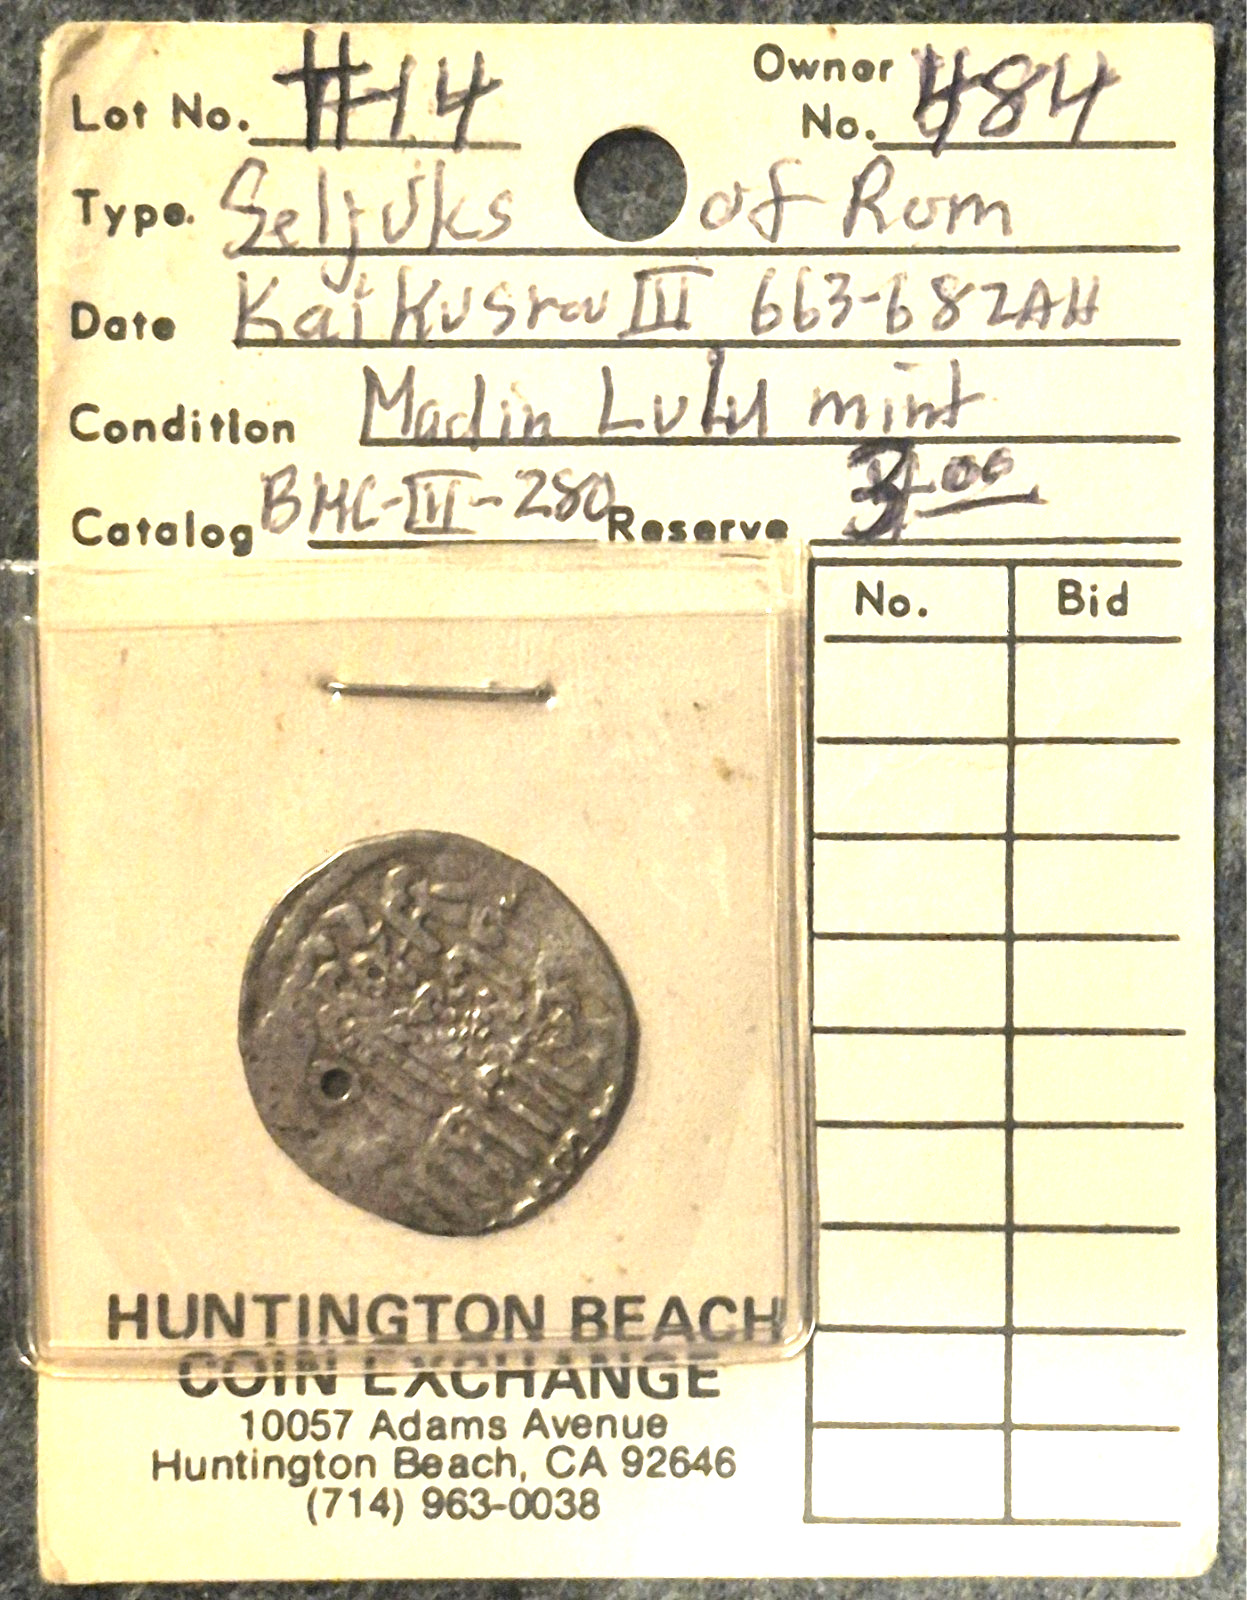 Lot No. #14
Owner No. 484
Type. Seljuks of Rum
Date Kai Kusrou III 663-682AH
Condition Madin Lulu mint
Catalog BMC-III-280 Reserve .00
No. Bid
HUNTINGTON BEACH
COIN EXCHANGE
10057 Adams Avenue
Huntington Beach, CA 92646
(714) 963-0038